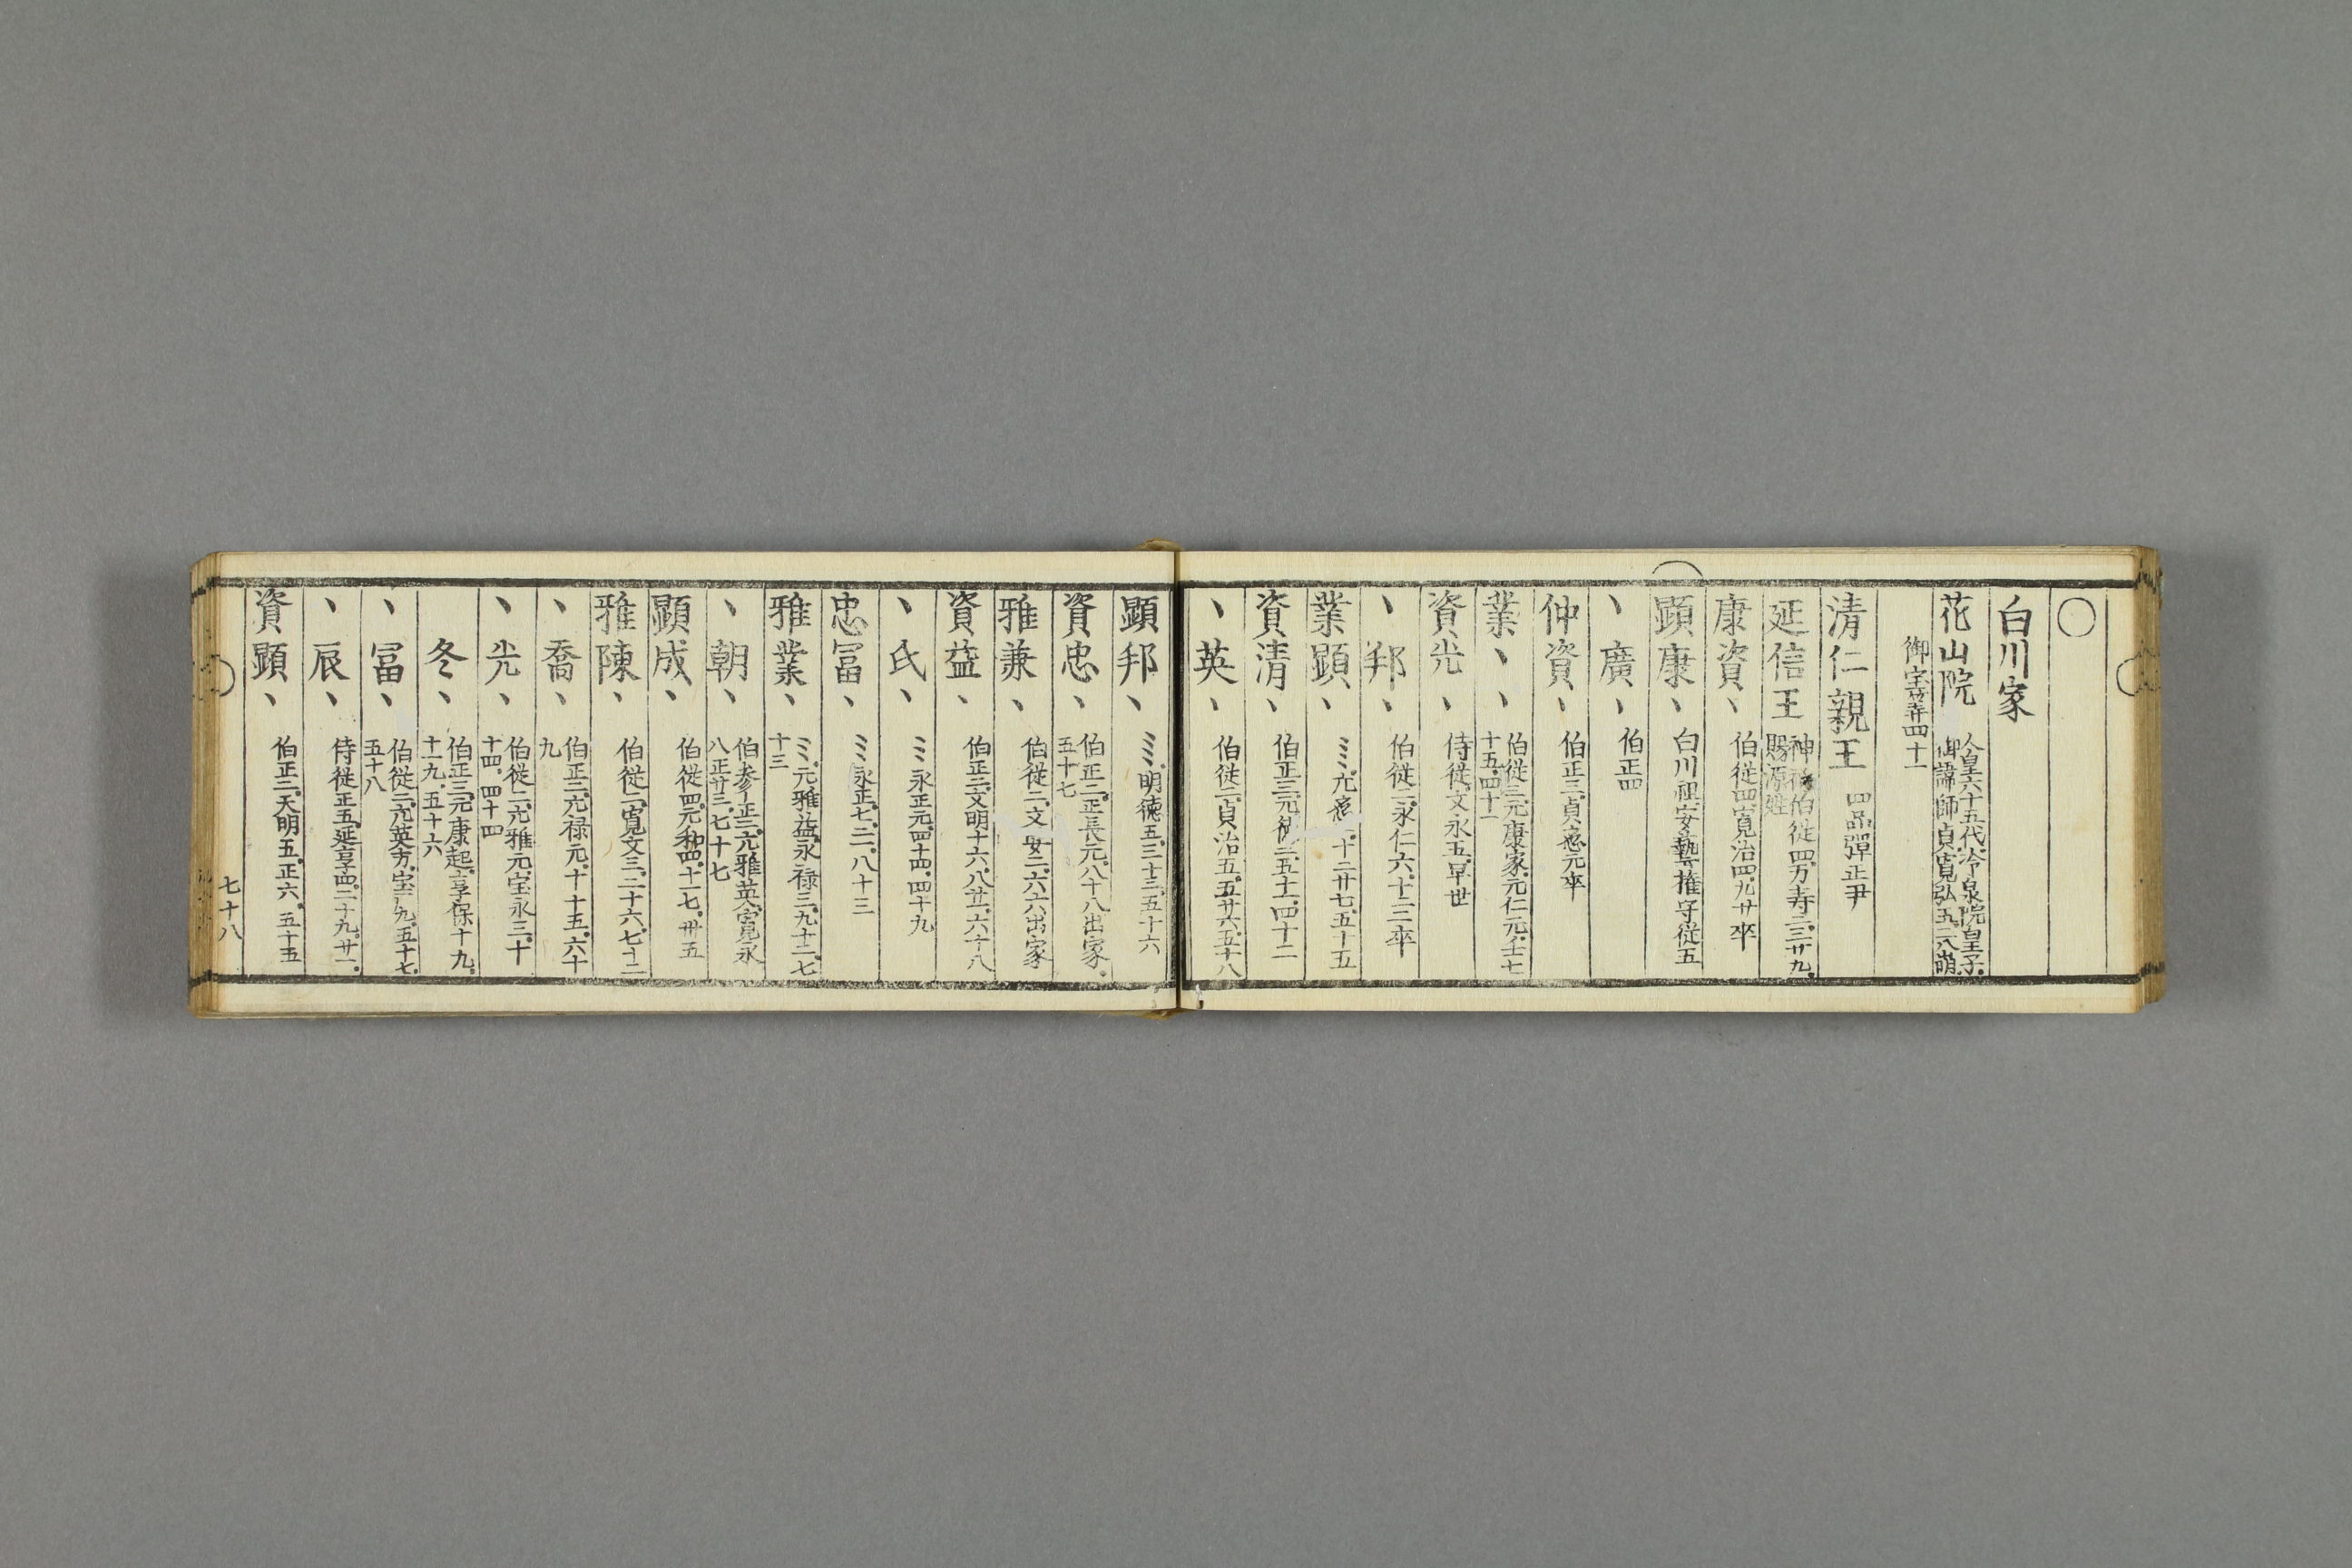 〇
白川家
花山院 人皇六十五代冷泉院皇子
御諱師貞寛弘五二八崩
御宝算四十一
清仁親王 四品弾正尹
延信王 神祇伯従四万寿二三廿九
賜源姓
康資丶 伯従四寛治四九廿卒
顕康丶 白川祖安藝権守従五
丶廣丶 伯正四
仲資丶 伯正三貞應元卒
業丶丶 伯従三元康家元仁元壬七
十五四十一
資光丶 侍従文永五早世
丶邦丶 伯従二永仁六十二三卒
業顕丶 ミミ元應二十二廿七五十五
資清丶 伯正三元徳二五十一四十二
丶英丶 伯従二貞治五五廿六五十八
顕邦丶 ミミ明徳五三十三五十六
資忠丶 伯正二正長元八十八出家
五十七
雅兼丶 伯従二文安二六六出家
資益丶 伯正二文明十六八廿一六十八
丶氏丶 ミミ永正元四十四四十九
忠冨丶 ミミ永正七二一八十三
雅業丶 ミミ元雅益永禄三九十二七
十三
丶朝丶 伯参正二元雅英寛永
八正廿三七十七
顕成丶 伯従四元和四十一七卅五
雅陳丶 伯従二寛文三二十六七十二
丶喬丶 伯正二元禄元十十五六十
九
丶光丶 伯従二元雅元宝永三十
十四四十四
冬丶 伯正三元康起享保十九
十一九五十六
丶冨丶 伯従二元英方宝九五十七
五十八
丶辰丶 侍従正五延享四二十九廿一
資顕丶 伯正二天明五正六五十五
七十八